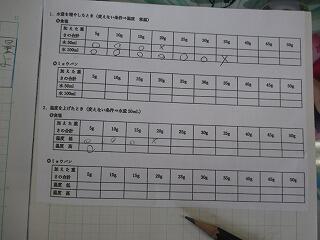 1. 水量を増やしたとき（変えない条件→温度　常温）
◎食塩
加えた重さの合計 5g 10g 15g 20g 25g 30g 35g 40g 45g 50g
水50ml ○ ○ ○ ×
水100ml ○ ○ ○ ○ ○ ○ ×
◎ミョウバン
加えた重さの合計 5g 10g 15g 20g 25g 30g 35g 40g 45g 50g
水50ml
水100ml
2. 温度を上げたとき（変えない条件→水量50ml）
◎食塩
加えた重さの合計 5g 10g 15g 20g 25g 30g 35g 40g 45g 50g
温度　低 ○ ○ ○ ×
温度　高 ○
◎ミョウバン
加えた重さの合計 5g 10g 15g 20g 25g 30g 35g 40g 45g 50g
温度　低
温度　高